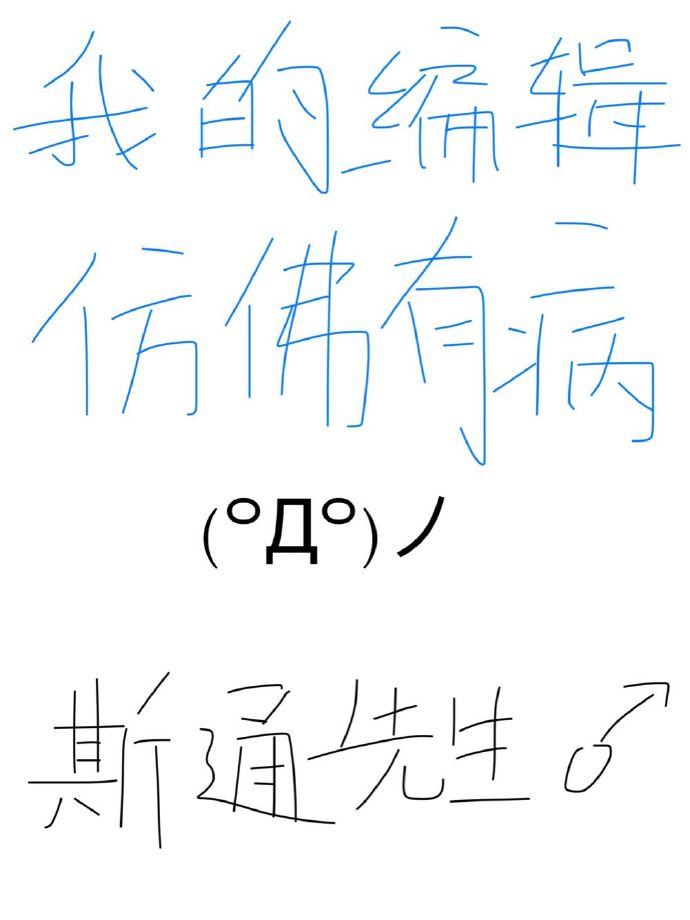 我的编辑
仿佛有病
(ºДº)ノ
斯通先生♂